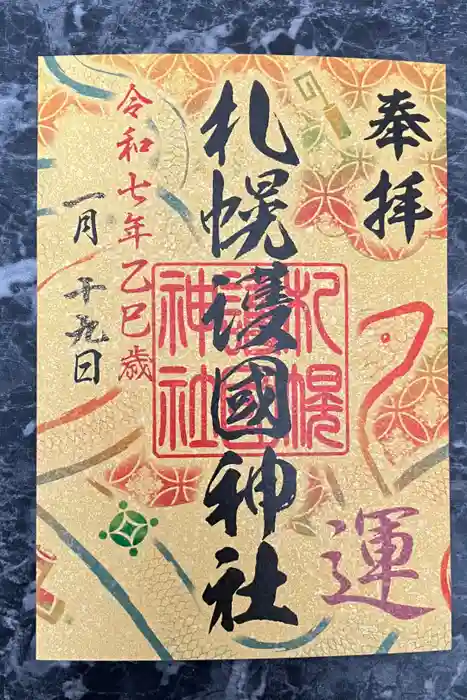 奉拝
札幌護國神社
札幌護國神社
運
令和七年乙巳歳
一月十九日